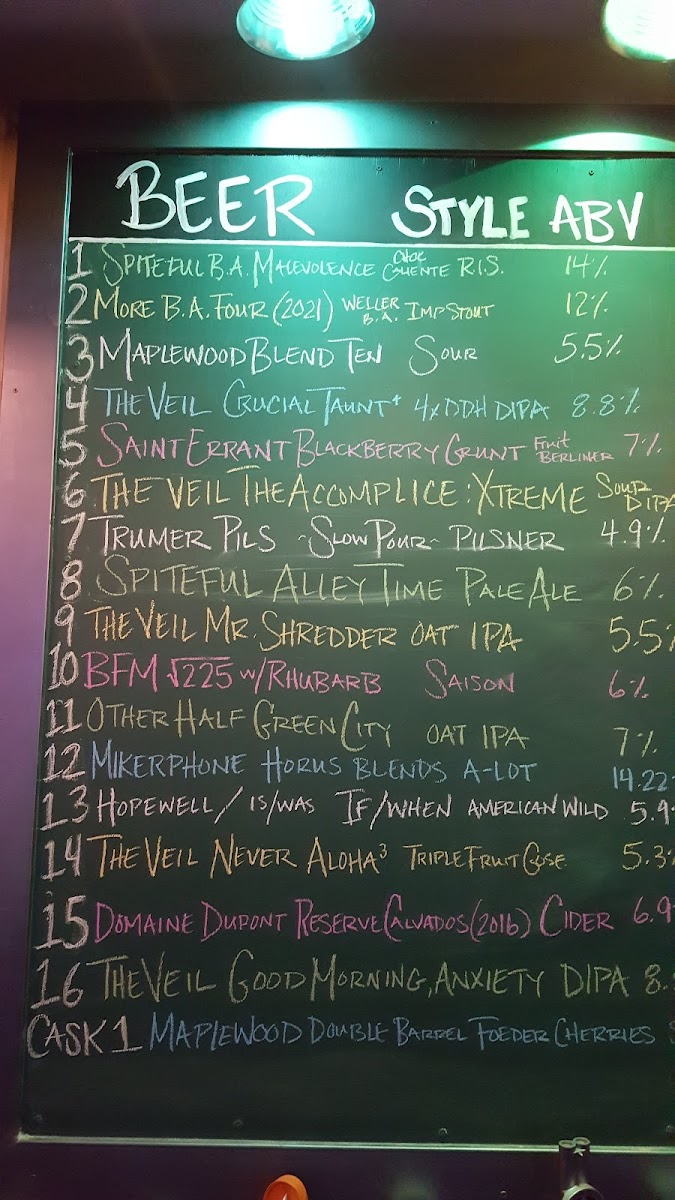 BEER STYLE ABV
1 SPITEFUL B.A. MALEVOLENCE CHOC CALIENTE R.I.S. 14%
2 MORE B.A. FOUR (2021) WELLER B.A. IMP STOUT 12%
3 MAPLEWOOD BLEND TEN SOUR 5.5%
4 THE VEIL CRUCIAL TAUNT⁴ 4XDDH DIPA 8.8%
5 SAINT ERRANT BLACKBERRY GRUNT FRUIT BERLINER 7%
6 THE VEIL THE ACCOMPLICE: XTREME SOUR DIPA
7 TRUMER PILS ~SLOW POUR~ PILSNER 4.9%
8 SPITEFUL ALLEY TIME PALE ALE 6%
9 THE VEIL MR. SHREDDER OAT IPA 5.5%
10 BFM √225 W/RHUBARB SAISON 6%
11 OTHER HALF GREEN CITY OAT IPA 7%
12 MIKERPHONE HORUS BLENDS A-LOT 14.22
13 HOPEWELL/IS/WAS IF/WHEN AMERICAN WILD 5.9
14 THE VEIL NEVER ALOHA³ TRIPLE FRUIT GOSE 5.3%
15 DOMAINE DUPONT RESERVE CALVADOS (2016) CIDER 6.9
16 THE VEIL GOOD MORNING, ANXIETY DIPA 8.
CASK 1 MAPLEWOOD DOUBLE BARREL FOEDER CHERRIES